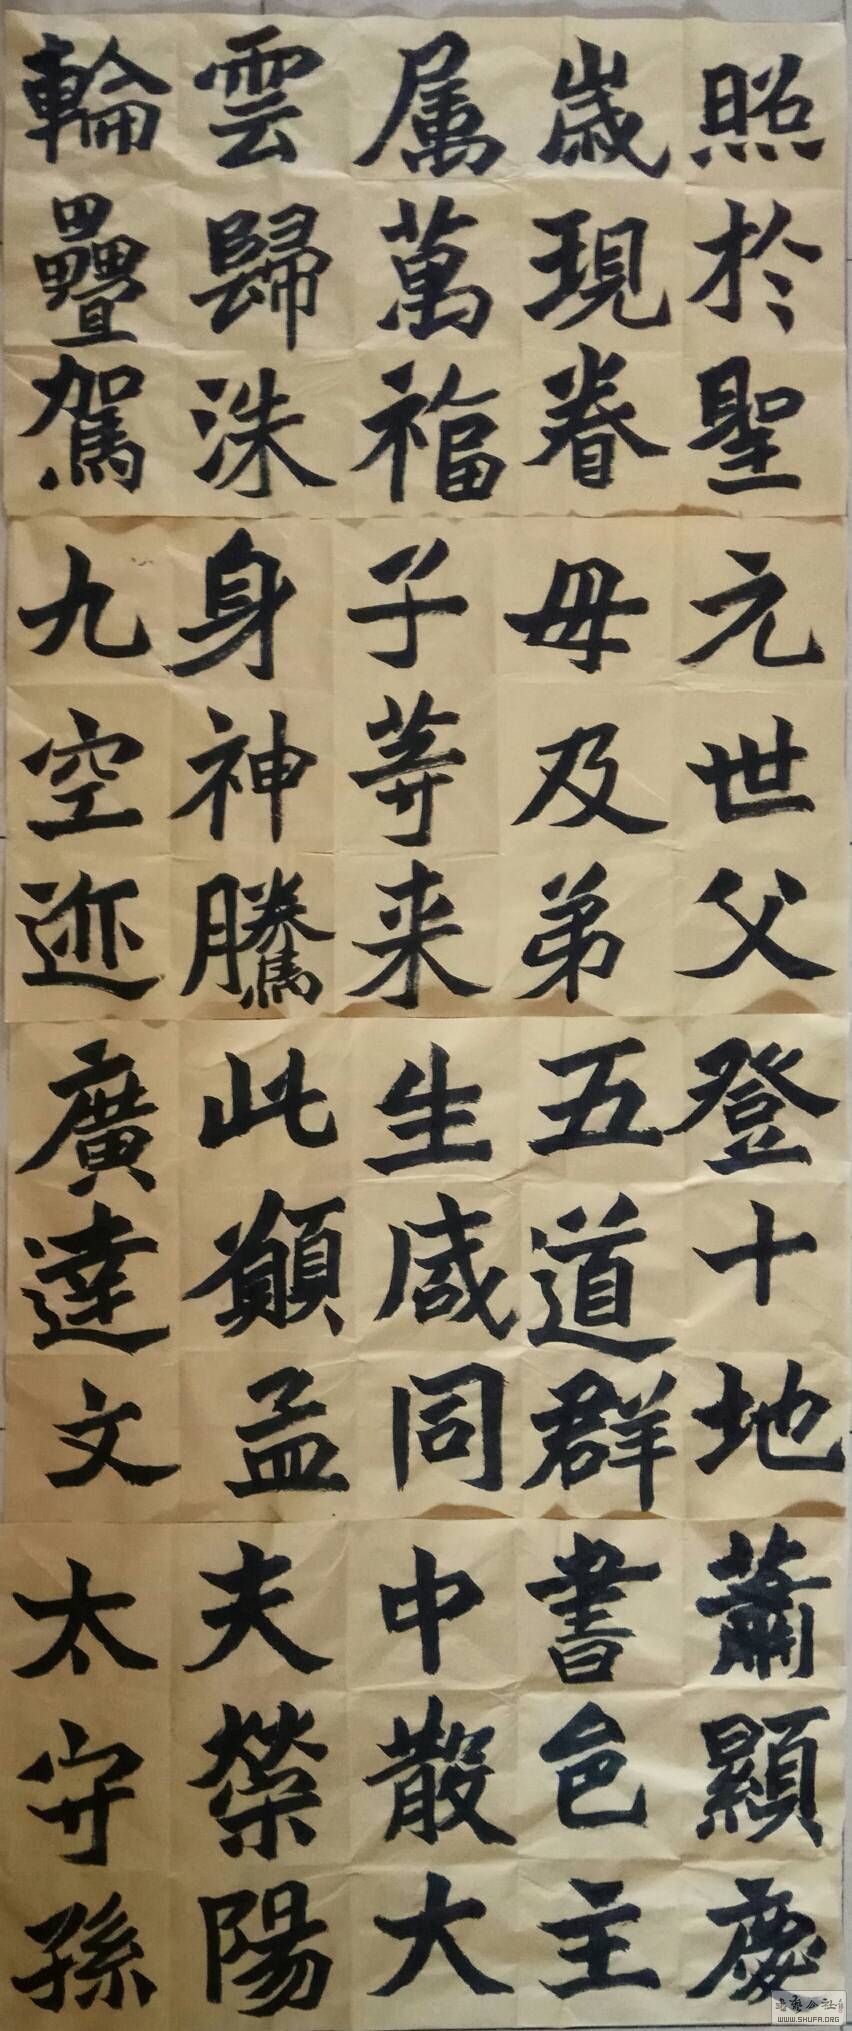 照於聖
歲現眷
属萬福
雲歸洙
輪疊駕
元世父
母及弟
子等来
身神騰
九空迹
登十地
五道群
生咸同
此願孟
廣達文
蕭顯慶
書邑主
中散大
夫榮陽
太守孫
WWW.SHUFA.ORG